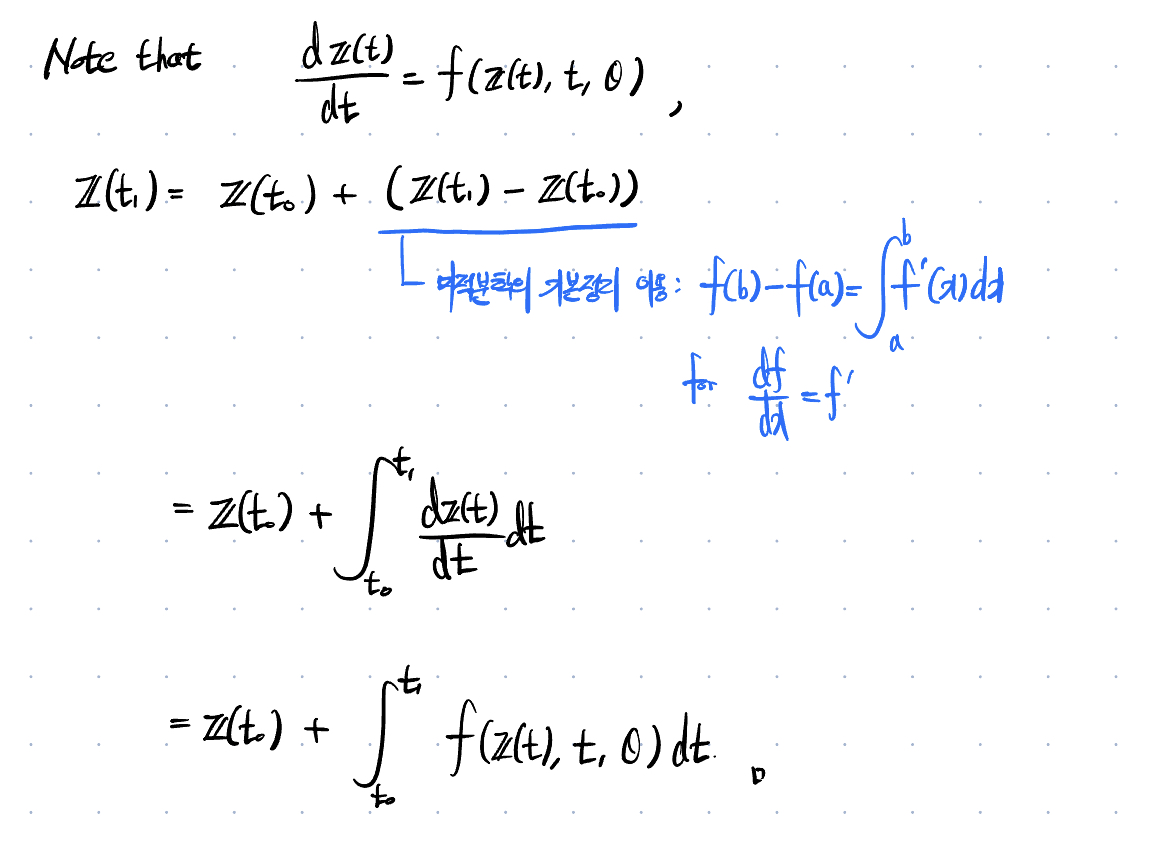 Note that dz(t)/dt = f(z(t), t, θ),
z(t₁) = z(t₀) + (z(t₁) − z(t₀))
미적분학의 기본정리 이용: f(b) − f(a) = ∫ₐᵇ f′(x)dx
for df/dx = f′
= z(t₀) + ∫_{t₀}^{t₁} dz(t)/dt dt
= z(t₀) + ∫_{t₀}^{t₁} f(z(t), t, θ) dt. □